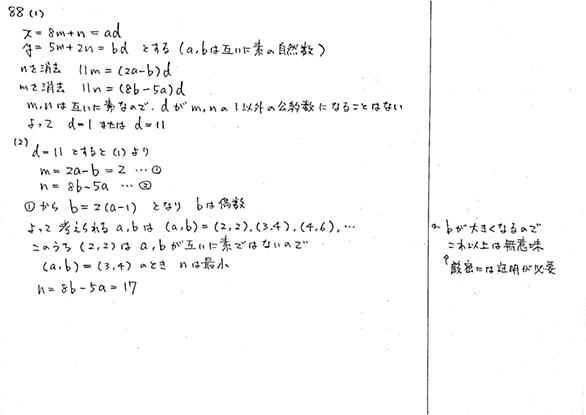 88 (1)
x = 8m+n = ad
y = 5m+2n = bd とする (a,bは互いに素の自然数)
nを消去 11m = (2a-b)d
mを消去 11n = (8b-5a)d
m,nは互いに素なので、dがm,nの1以外の公約数になることはない
よって d=1 または d=11
(2)
d=11 とすると(1)より
m = 2a-b = 2 … ①
n = 8b-5a … ②
①から b=2(a-1) となり bは偶数
よって 考えられる a,b は (a,b) = (2,2),(3,4),(4,6),…
このうち (2,2) は a,b が互いに素ではないので
(a,b) = (3,4) のとき nは最小
n = 8b-5a = 17
a bが大きくなるので
これ以上は無意味
厳密には証明が必要